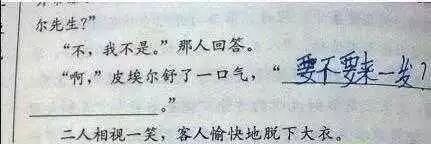 尔先生?”
“不,我不是。”那人回答。
“啊,”皮埃尔舒了一口气,“要不要来一发?
。”
二人相视一笑,客人愉快地脱下大衣。